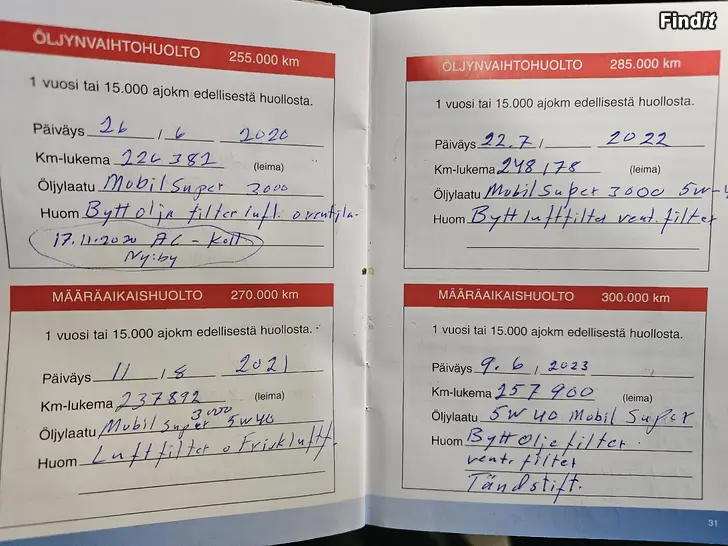 Findit
ÖLJYNVAIHTOHUOLTO 255.000 km
1 vuosi tai 15.000 ajokm edellisestä huollosta.
Päiväys 26 / 6 2020
Km-lukema 226 382 (leima)
Öljylaatu Mobil Super 3000
Huom Bytt olja filter luft. o ventila.
17.11.2020 AC - Koll
Ny:by
MÄÄRÄAIKAISHUOLTO 270.000 km
1 vuosi tai 15.000 ajokm edellisestä huollosta.
Päiväys 11 / 8 2021
Km-lukema 237892 (leima)
3000
Öljylaatu Mobil Super 5W40
Huom Luftfilter o Friskluftf.
ÖLJYNVAIHTOHUOLTO 285.000 km
1 vuosi tai 15.000 ajokm edellisestä huollosta.
Päiväys 22.7 / 2022
Km-lukema 248 178 (leima)
Öljylaatu Mobil Super 3000 5W-4
Huom Bytt luftfilter vent. filter
MÄÄRÄAIKAISHUOLTO 300.000 km
1 vuosi tai 15.000 ajokm edellisestä huollosta.
Päiväys 9. 6 / 2023
Km-lukema 257 900 (leima)
Öljylaatu 5W 40 Mobil Super
Huom Bytt Olje filter.
ventr filter
Tändstift.
31